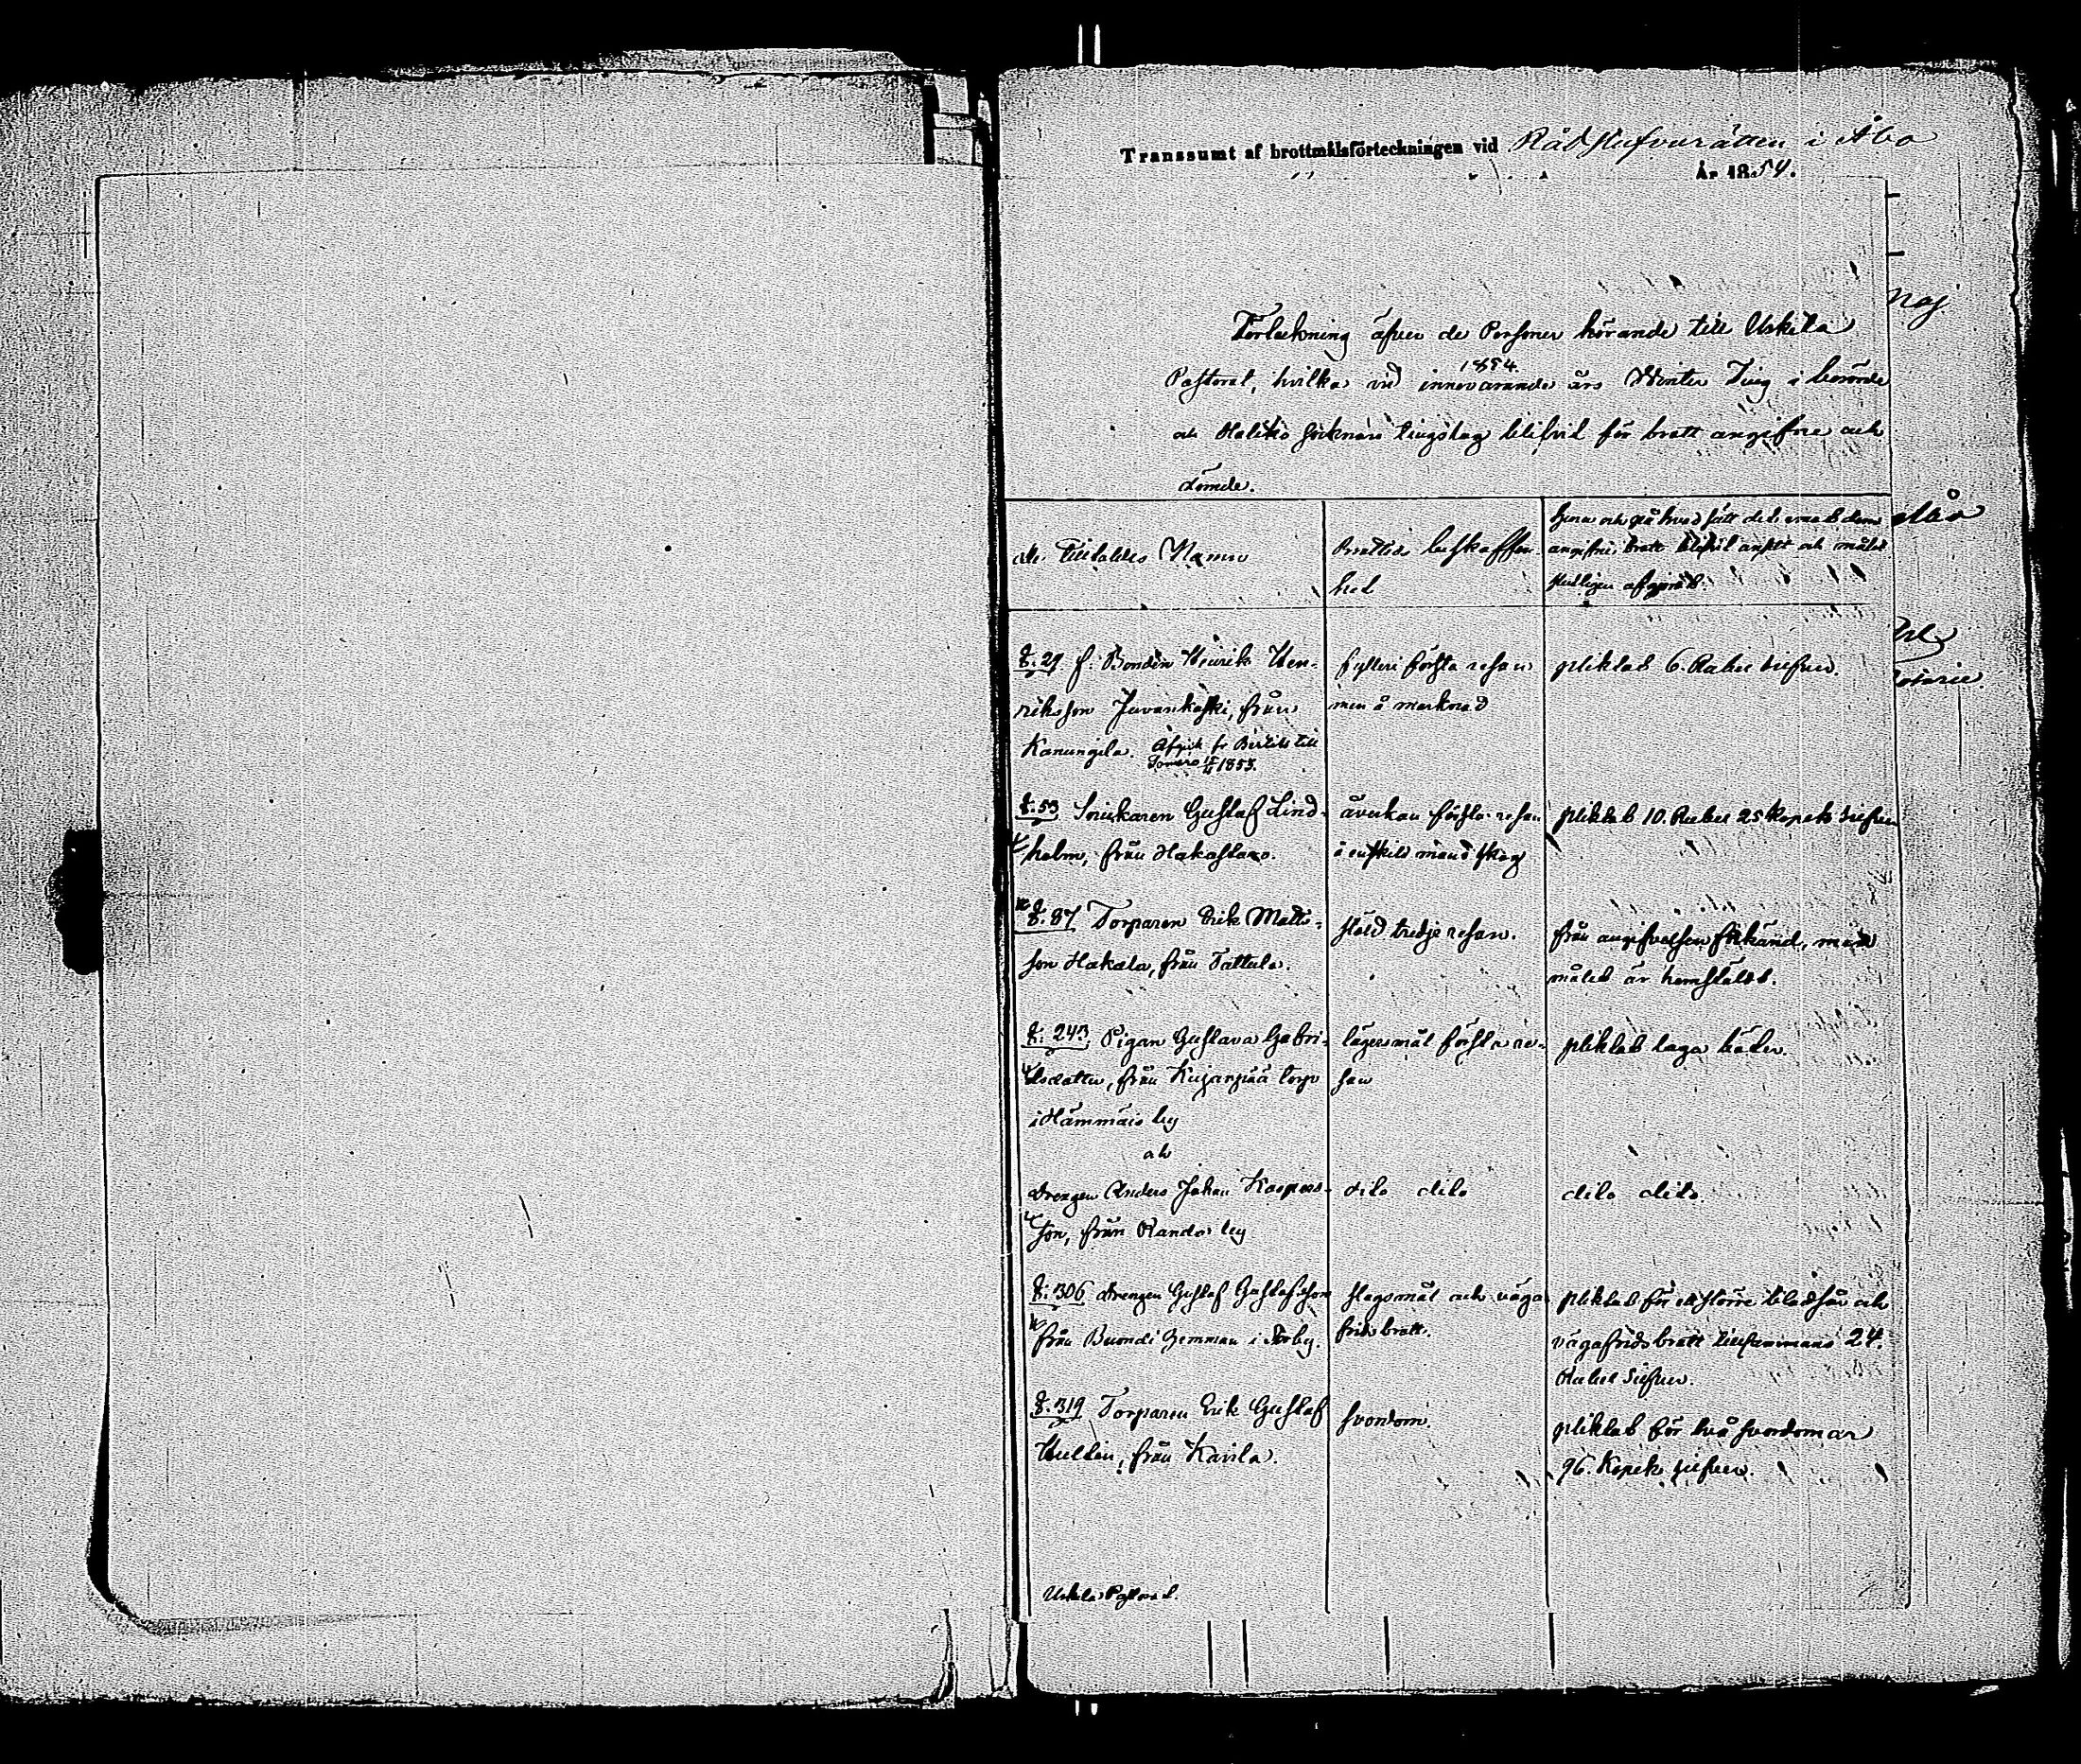 Transsumt af brottmålsförteckningen vid Rådstufvurätten i Åbo
År 1854.
Maj
Förteckning öfver de Personer hörande till Uskela
Pastorat, hvilka vid innevarande 1854 års Winter Ting i berörde
och Haliko Socknars tingslag blifvit för brott angifne och
dömde.
Åbo
de tilltaldes Namn
Brottets beskaffen-
hed
huru och på hvad sätt det emot dem
angifne brott blifvit ansett och målet
slutligen afgjordt.
§. 29 f. Bonden Henrik Hen-
riksson Juvankoski, från
Kanungila. Afgick fr Bertils till
Somero 15/4 1853.
fylleri första resan
men å marknad
pliktat 6. Rubel silfver.
§. 53 Snickaren Gustaf Lind-
holm, från Hakastaro.
åverkan första resan
å enskild mans skog
pliktat 10. Rubel 25 kopek silfver
§. 87 Torparen Erik Matts-
son Hakala, från Tattula.
stöld tredje resan.
från angifvelsen frikänd, men
målet är hemstäldt.
§. 243. Pigan Gustava Gabri-
elsdotter, från Kujanpää torp
i Hämmäis by
lägersmål första re-
san
pliktat laga böter.
och
Drengen Anders Johan Kaspers-
son, från Randa by
dito dito
dito dito.
§. 306 Drengen Gustaf Gustafsson
från Buondi hemman i by.
slagsmål och väga
fridsbrott.
pliktat för ett större blodsår och
vägafridsbrott tillsammans 24.
Rubel Silfver.
§. 319 Torparen Erik Gustaf
Hulldin, från Kavila.
svordom.
pliktat för två svordomar
96. Kopek silfver.
Uskela Pastorat.